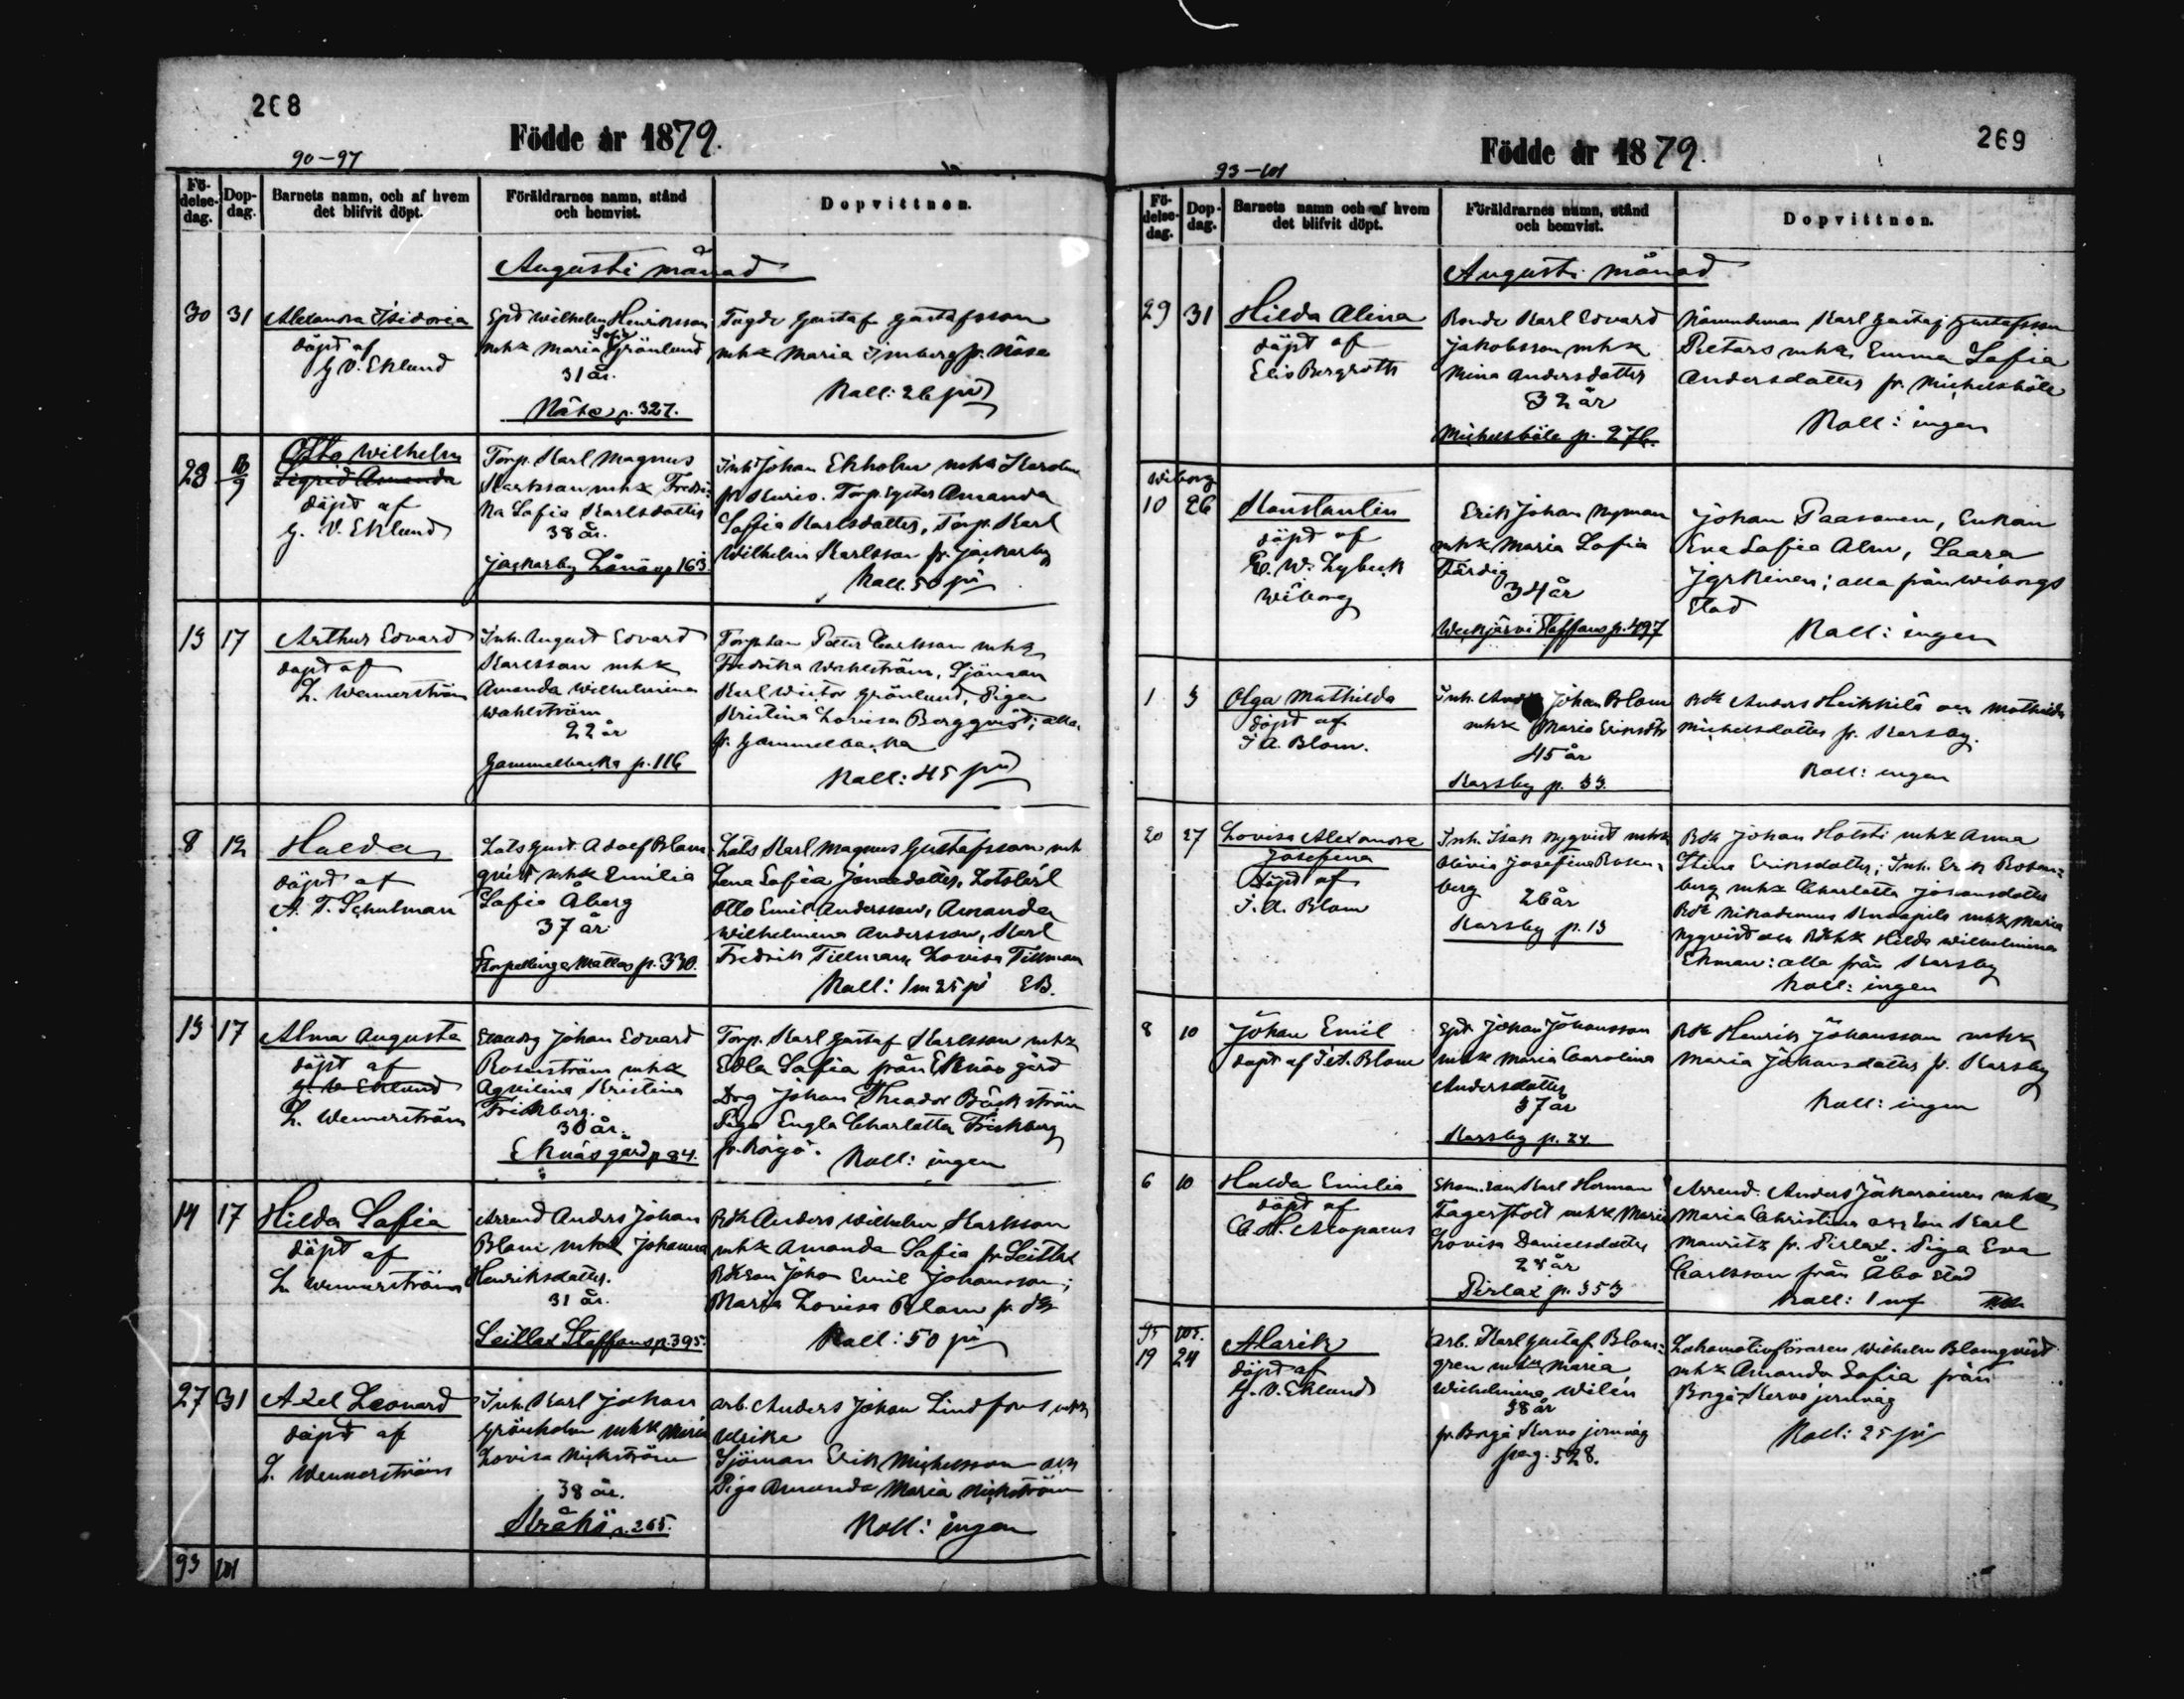 268
Födde år 1879.
90-97
Fö-
delse-
dag.
Dop-
dag.
Barnets namn, och af hvem
det blifvit döpt.
Föräldrarnes namn, stånd
och hemvist.
Dopvittnen.
Augusti månad
30 31
Alexandra Isidoria
döpt af
G V. Eklund
Epd Wilhelm Henriksson
mhk Maria Sofia Grönlund
31 år.
Näse p. 327.
Gustaf Gustafsson
mhk Maria Imberg fr. Näse
Koll: 26 pi
28 10/9
Otto Wilhelm
Sigrid Amanda
döpt af
G. V. Eklund
Torp. Karl Magnus
Karlsson mhk Fredri-
ka Sofia Karlsdotter
38 år.
Jackarby Lönäs p 163.
Inh Johan Ekholm mhk Karolina
Amanda
Sofia Karlsdotter, Torp. Karl
Wilhelm Karlsson fr. Jackarby
Koll. 50 pi
13 17
Arthur Edvard
döpt af
L. Wennerström
Inh. August Edvard
Karlsson mhk
Amanda Wilhelmina
Wahlström
22 år
Gammelbacka p. 116
Petter Carlsson mhk
Fredrika Wahlström, Sjöman
Karl Victor Grönlund, Piga
Kristina Lovisa Bergqvist; alla
fr. Gammelbacka
Koll: 45 pi
8 12
Hulda
döpt af
A. T. Schulman
Lots Gust. Adolf Blom-
qvist mhk Emilia
Sofia Åberg
37 år
Mattas p. 330.
Lots Karl Magnus Gustafsson mh
Lena Sofia Jonaedotter, Lotslärl
Otto Emil Andersson, Amanda
Wilhelmina Andersson, Karl
Fredrik Tillman, Lovisa Tillman
Koll: 1 m 25 pi EB.
13 17
Alma Augusta
döpt af
G. V. Eklund
L. Wennerström
Johan Edvard
Rosenström mhk
Aqvilina Kristina
Frickberg.
30 år.
Eknäs gård p 84.
Torp. Karl Gustaf Karlsson mhk
Edla Sofia från Eknäs gård
Drg Johan Theodor Bäckström
Piga Engla Charlotta Frickberg
fr. Borgå. Koll: ingen
14 17
Hilda Sofia
döpt af
L. Wennerström
Arrend Anders Johan
Blom mhk Johanna
Henriksdotter.
31 år.
Seitlax Staffans p. 395.
Bdk Anders Wilhelm Karlsson
mhk Amanda Sofia fr Seitlax
Bdkson Johan Emil Johansson;
Maria Lovisa Blom
Koll: 50 pi
27 31
Axel Leonard
döpt af
L. Wennerström
Inh. Karl Johan
Grönholm mhk Maria
Lovisa Nickström
38 år.
Kråkö p. 265.
Arb. Anders Johan Lindfors mhk
Ulrika
Sjöman Erik Mickelsson och
Piga Amanda Maria Nickström
Koll: ingen
93 101
269
Födde år 1879.
93-101
Fö-
delse-
dag.
Dop-
dag.
Barnets namn och af hvem
det blifvit döpt.
Föräldrarnes namn, stånd
och hemvist.
Dopvittnen.
Augusti månad
29 31
Hilda Alina
döpt af
Elis Bergroth
Bonde Karl Edvard
Jakobsson mhk
Mina Andersdotter
32 år
Mickelsböle p. 276.
Nämndeman Karl Gustaf Gustafsson
Petars mhk Emma Sofia
Andersdotter fr. Mickelsböle
Koll: ingen
Wiborg
10 26
Konstantin
döpt af
E. W. Lybeck
Wiborg
Erik Johan Nyman
mhk Maria Sofia
Färdig
34 år
Weckjärvi Staffans p. 497
Johan Paasonen, Enkan
Eva Sofia Alm, Saara
Jyrkinen; alla från Wiborgs
stad
Koll: ingen
1 3
Olga Mathilda
döpt af
I A. Blom.
Inh. Johan Blom
mhk Maria Eriksdtr
45 år
Karsby p. 33.
Bdk Anders Heikkilä och Mathilda
Mickelsdotter fr. Karsby.
Koll: ingen
20 27
Lovisa Alexandra
Josefina
döpt af
I. A. Blom
Inh. Isak Nyqvist mhk
Olivia Josefina Rosen-
berg
26 år
Karsby p. 13
Bdk Johan Holsti mhk Anna
Stina Eriksdotter; Inh. Erik Rosen-
berg mhk Charlotta Johansdotter
Bdk Nikodemus Knaapila mhk Maria
Nyqvist och Hilda Wilhelmina
Ekman: alla från Karsby
Koll: ingen
8 10
Johan Emil
döpt af I.A. Blom
Epd. Johan Johansson
mhk Maria Carolina
Andersdotter
37 år
Karsby p. 24.
Bdk Henrik Johansson mhk
Maria Johansdotter fr. Karsby
Koll: ingen
6 10
Hulda Emilia
döpt af
C. A. Alopaeus
Karl Herman
Fagerstedt mhk Maria
Lovisa Danielsdotter
28 år
Pirlax p. 353
Arrend. Anders Jäkaräinen mhk
Maria Christina och Son Karl
Mauritz fr. Pirlax. Piga Eva
Carlsson från Åbo stad
Koll: 1 mf
95 105.
19 24
Alarik
döpt af
G. V. Eklund
Arb. Karl Gustaf Blom-
gren mhk Maria
Wilhelmina Wilén
38 år
fr. Borgå Kervo jernväg
pag. 528.
Lokomotivföraren Wilhelm Blomqvist
mhk Amanda Sofia från
Borgå Kervo jernväg
Koll: 25 pi